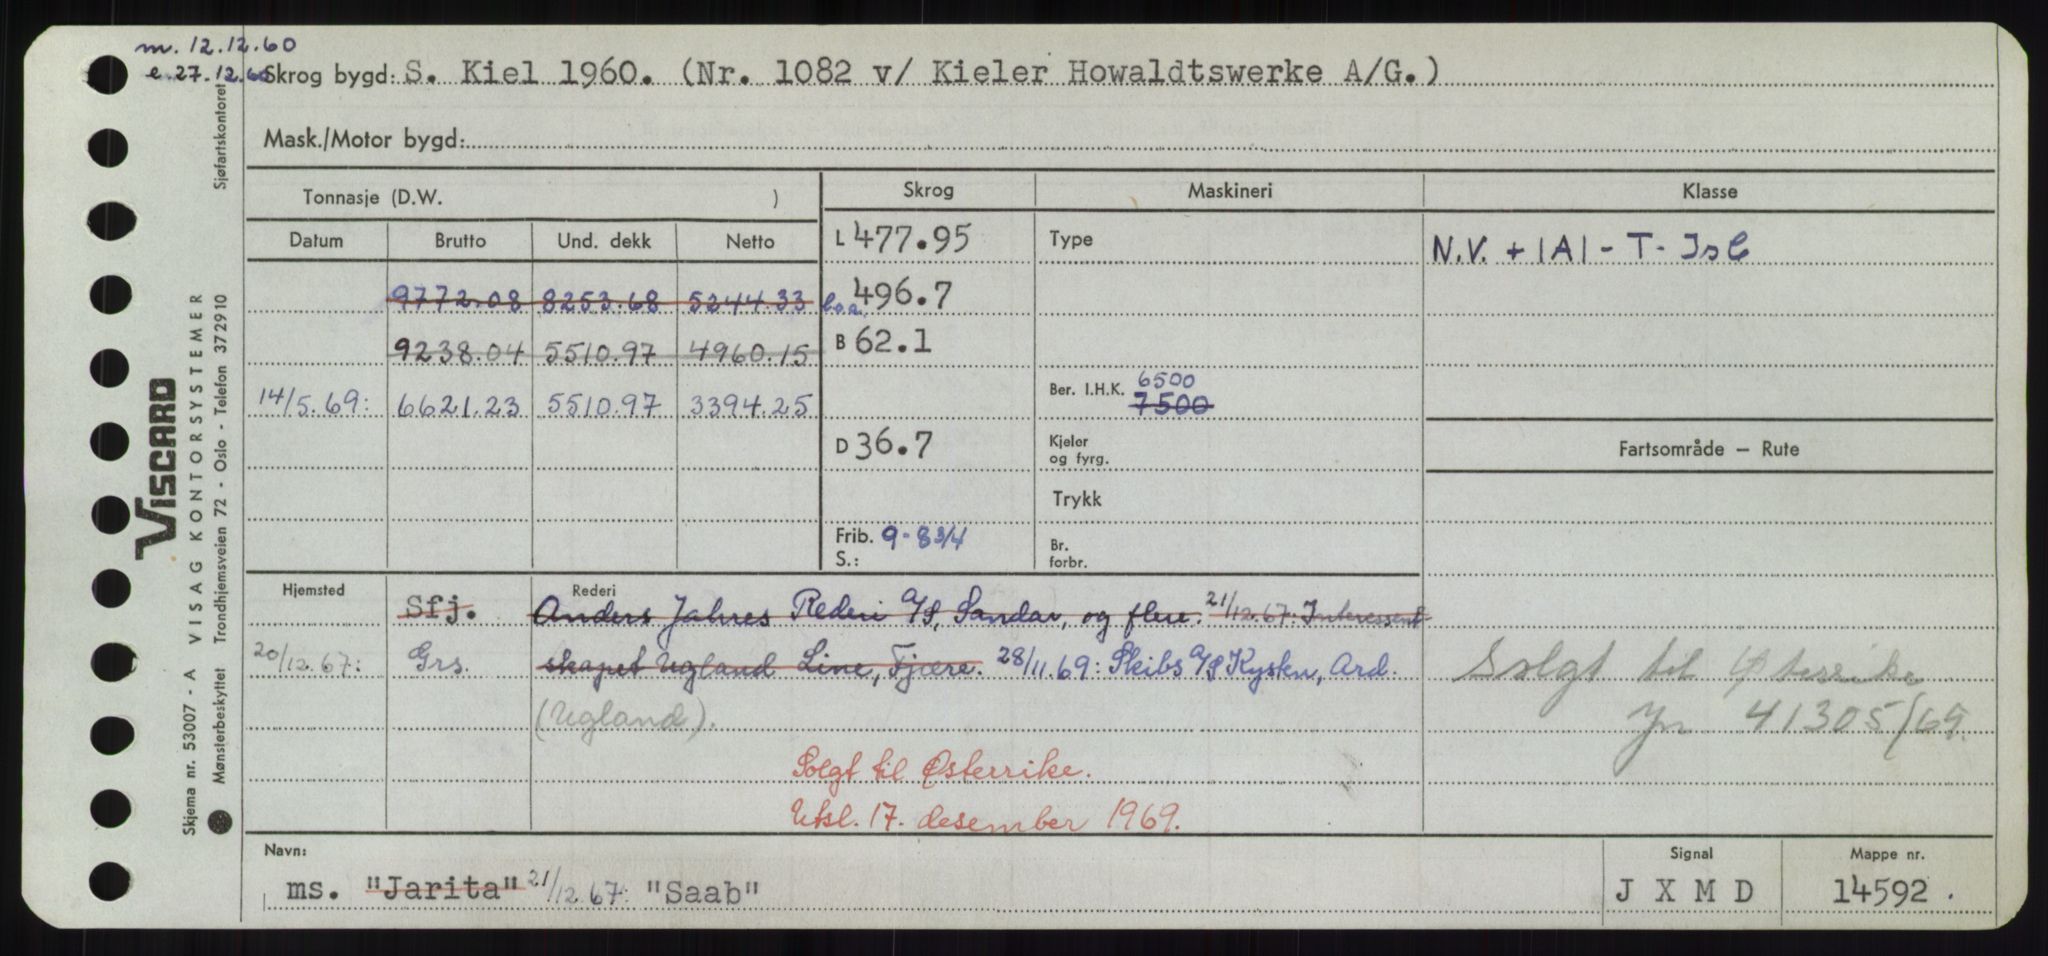 m. 12.12.60
e. 27.12.60
Skrog bygd: S. Kiel 1960. (Nr. 1082 v/ Kieler Howaldtswerke A/G.)
Mask./Motor bygd:
Tonnasje (D.W. )
Skrog
Maskineri
Klasse
Datum Brutto Und. dekk Netto
L 477.95
Type
N.V. + |A| - T - Is C
9772.08 8253.68 5244.33
l.o.a. 496.7
9238.04 5510.97 4960.15
B 62.1
14/5.69: 6621.23 5510.97 3394.25
Ber. I.H.K. 6500
7500
D 36.7
Kjeler
og fyrg.
Fartsområde — Rute
Trykk
Frib. 9-8 3/4
S.:
Br.
forbr.
Hjemsted
Rederi
Sfj. Anders Jahres Rederi A/S, Sandar, og flere. 21/12.67: Interessent-
20/12.67: Grs. skapet Ugland Line, Fjære. 28/11.69: Skibs A/S Kysten, Ard.
(Ugland).
Solgt til Østerrike
Jn 41305/69.
Solgt til Østerrike.
Utsl. 17. desember 1969.
Navn:
ms. "Jarita" 21/12.67: "Saab"
Signal
J X M D
Mappe nr.
14592.
Sjøfartskontoret
VISCARD
VISAG KONTORSYSTEMER
Skjema nr. 53007 - A
Mønsterbeskyttet Trondhjemsveien 72 - Oslo - Telefon 372910